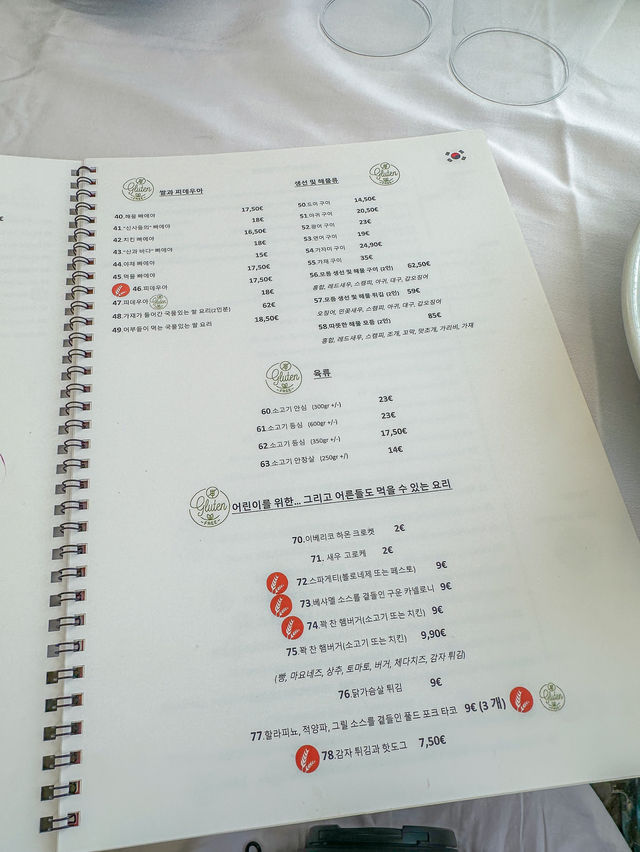 Gluten FREE 쌀과 피데우아
40.해물 빠에야 17,50€
41."신사들의" 빠에야 18€
42.치킨 빠에야 16,50€
43."산과 바다" 빠에야 18€
44.야채 빠에야 15€
45.먹물 빠에야 17,50€
46.피데우아 17,50€
47.피데우아 Gluten FREE 18€
48.가재가 들어간 국물있는 쌀 요리(2인분) 62€
49.어부들이 먹는 국물있는 쌀 요리 18,50€
생선 및 해물류 Gluten FREE
50.도미 구이 14,50€
51.아귀 구이 20,50€
52.광어 구이 23€
53.연어 구이 19€
54.가자미 구이 24,90€
55.가재 구이 35€
56.모듬 생선 및 해물 구이 (2인) 62,50€
홍합, 레드새우, 스캠피, 아귀, 대구, 갑오징어
57.모듬 생선 및 해물 튀김 (2인) 59€
오징어, 민꽃새우, 스캠피, 아귀, 대구, 갑오징어
58.따뜻한 해물 모듬 (2인) 85€
홍합, 레드새우, 스캠피, 조개, 꼬막, 맛조개, 가리비, 가재
Gluten FREE 육류
60.소고기 안심 (300gr +/-) 23€
61.소고기 등심 (600gr +/-) 23€
62.소고기 등심 (350gr +/-) 17,50€
63.소고기 안창살 (250gr +/) 14€
Gluten FREE 어린이를 위한... 그리고 어른들도 먹을 수 있는 요리
70.이베리코 하몬 크로켓 2€
71. 새우 고로케 2€
72.스파게티(볼로네제 또는 페스토) 9€
73.베샤멜 소스를 곁들인 구운 카넬로니 9€
74.꽉 찬 햄버거(소고기 또는 치킨) 9€
75.꽉 찬 햄버거(소고기 또는 치킨) 9,90€
(빵, 마요네즈, 상추, 토마토, 버거, 체다치즈, 감자 튀김)
76.닭가슴살 튀김 9€
77.할라피뇨, 적양파, 그릴 소스를 곁들인 풀드 포크 타코 9€ (3 개) Gluten FREE
78.감자 튀김과 핫도그 7,50€